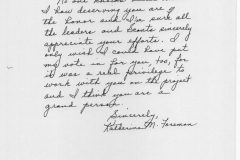 I how deserving you are of
the honor and I'm sure all
the leaders and Scouts sincerely
appreciate your efforts. I
only wish I could have put
my vote in for you, too, for
it was a real privilege to
work with you on the project
and I think you are a
grand person.
Sincerely,
Katherine M. Foreman